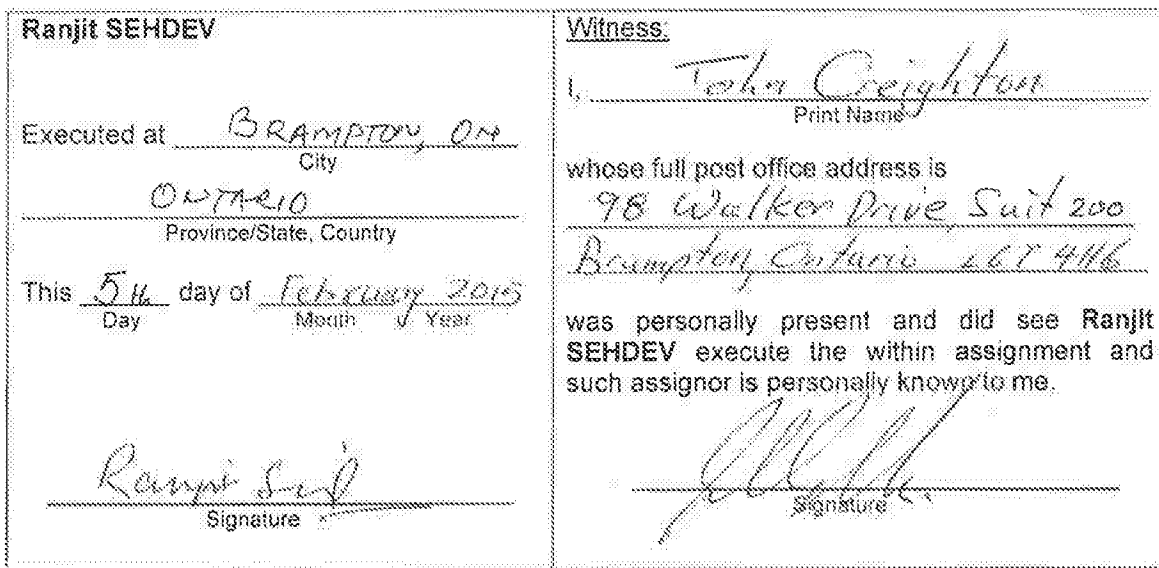 Ranjit SEHDEV
Executed at BRAMPTON, ON
City
ONTARIO
Province/State, Country
This 5th day of February 2015
Day Month Year
Signature
Witness:
I, John Creighton
Print Name
whose full post office address is
98 Walker Drive, Suit 200
Brampton, Ontario L6T 4H6
was personally present and did see Ranjit
SEHDEV execute the within assignment and
such assignor is personally known to me.
Signature